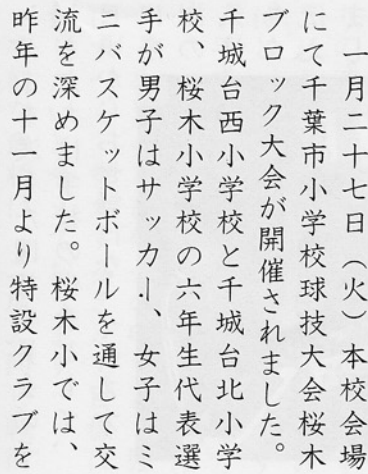 一月二十七日（火）本校会場
にて千葉市小学校球技大会桜木
ブロック大会が開催されました。
千城台西小学校と千城台北小学
校、桜木小学校の六年生代表選
手が男子はサッカー、女子はミ
ニバスケットボールを通して交
流を深めました。桜木小では、
昨年の十一月より特設クラブを